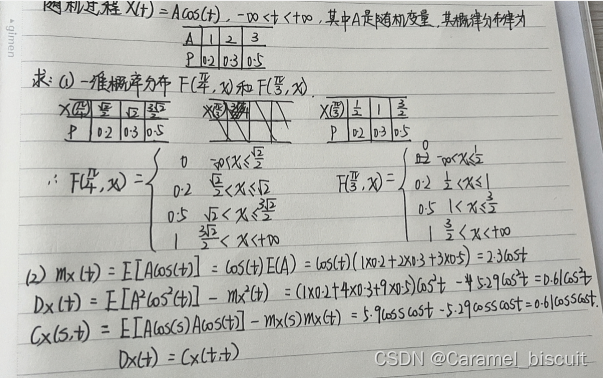 随机过程 X(t)=Acos(t), -∞<t<+∞, 其中A是随机变量, 其概率分布律为
A 1 2 3
P 0.2 0.3 0.5
求: (1) 一维概率分布 F(π/4, x) 和 F(π/3, x).
X(π/4) √2/2 √2 3√2/2 X(π/3) X(π/3) 1/2 1 3/2
P 0.2 0.3 0.5 P 0.2 0.3 0.5
∴ F(π/4, x) = { 0 -∞<x≤√2/2 F(π/3, x) = { 0 -∞<x≤1/2
0.2 √2/2<x≤√2 0.2 1/2<x≤1
0.5 √2<x≤3√2/2 0.5 1<x≤3/2
1 3√2/2<x<+∞ 1 3/2<x<+∞
(2) mx(t) = E[Acos(t)] = cos(t)E(A) = cos(t)(1×0.2+2×0.3+3×0.5) = 2.3cost
Dx(t) = E[A²cos²(t)] - mx²(t) = (1×0.2+4×0.3+9×0.5)cos²t - 5.29cos²t = 0.61cos²t
Cx(s,t) = E[Acos(s)Acos(t)] - mx(s)mx(t) = 5.9cosscost - 5.29cosscost = 0.61cosscost.
Dx(t) = Cx(t,t)
CSDN @Caramel_biscuit
glmen